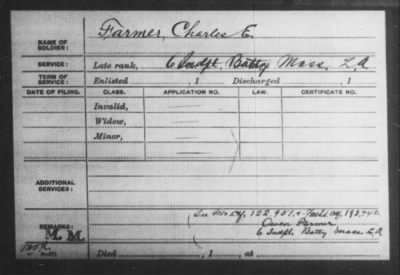 NAME OF SOLDIER: Farmer, Charles E.
SERVICE: Late rank, 6 Indpt. Batty Mass. L.A
TERM OF SERVICE: Enlisted , 1 Discharged , 1
DATE OF FILING. CLASS. APPLICATION NO. LAW. CERTIFICATE NO.
Invalid,
Widow,
Minor,
ADDITIONAL SERVICES:
Owen Farmer
6 Indpt Batty Mass. L.A
REMARKS: M. M.
Died , 1 , at